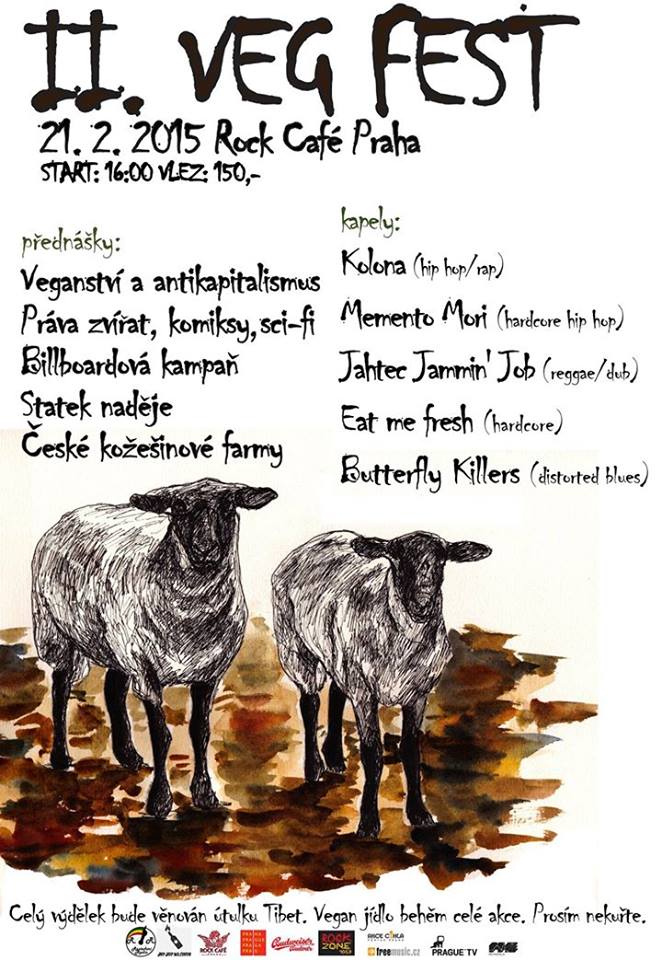 II. VEG FEST
21. 2. 2015 Rock Café Praha
START: 16:00 VLEZ: 150,-
přednášky:
Veganství a antikapitalismus
Práva zvířat, komiksy, sci-fi
Billboardová kampaň
Statek naděje
České kožešinové farmy
kapely:
Kolona (hip hop/rap)
Memento Mori (hardcore hip hop)
Jahtec Jammin' Job (reggae/dub)
Eat me fresh (hardcore)
Butterfly Killers (distorted blues)
Celý výdělek bude věnován útulku Tibet. Vegan jídlo během celé akce. Prosím nekuřte.
ROCK CAFÉ
PRAHA PRAGUE PRAGA PRAG
Budweiser Budvar
ROCK ZONE
freemusic.cz
PRAGUE TV